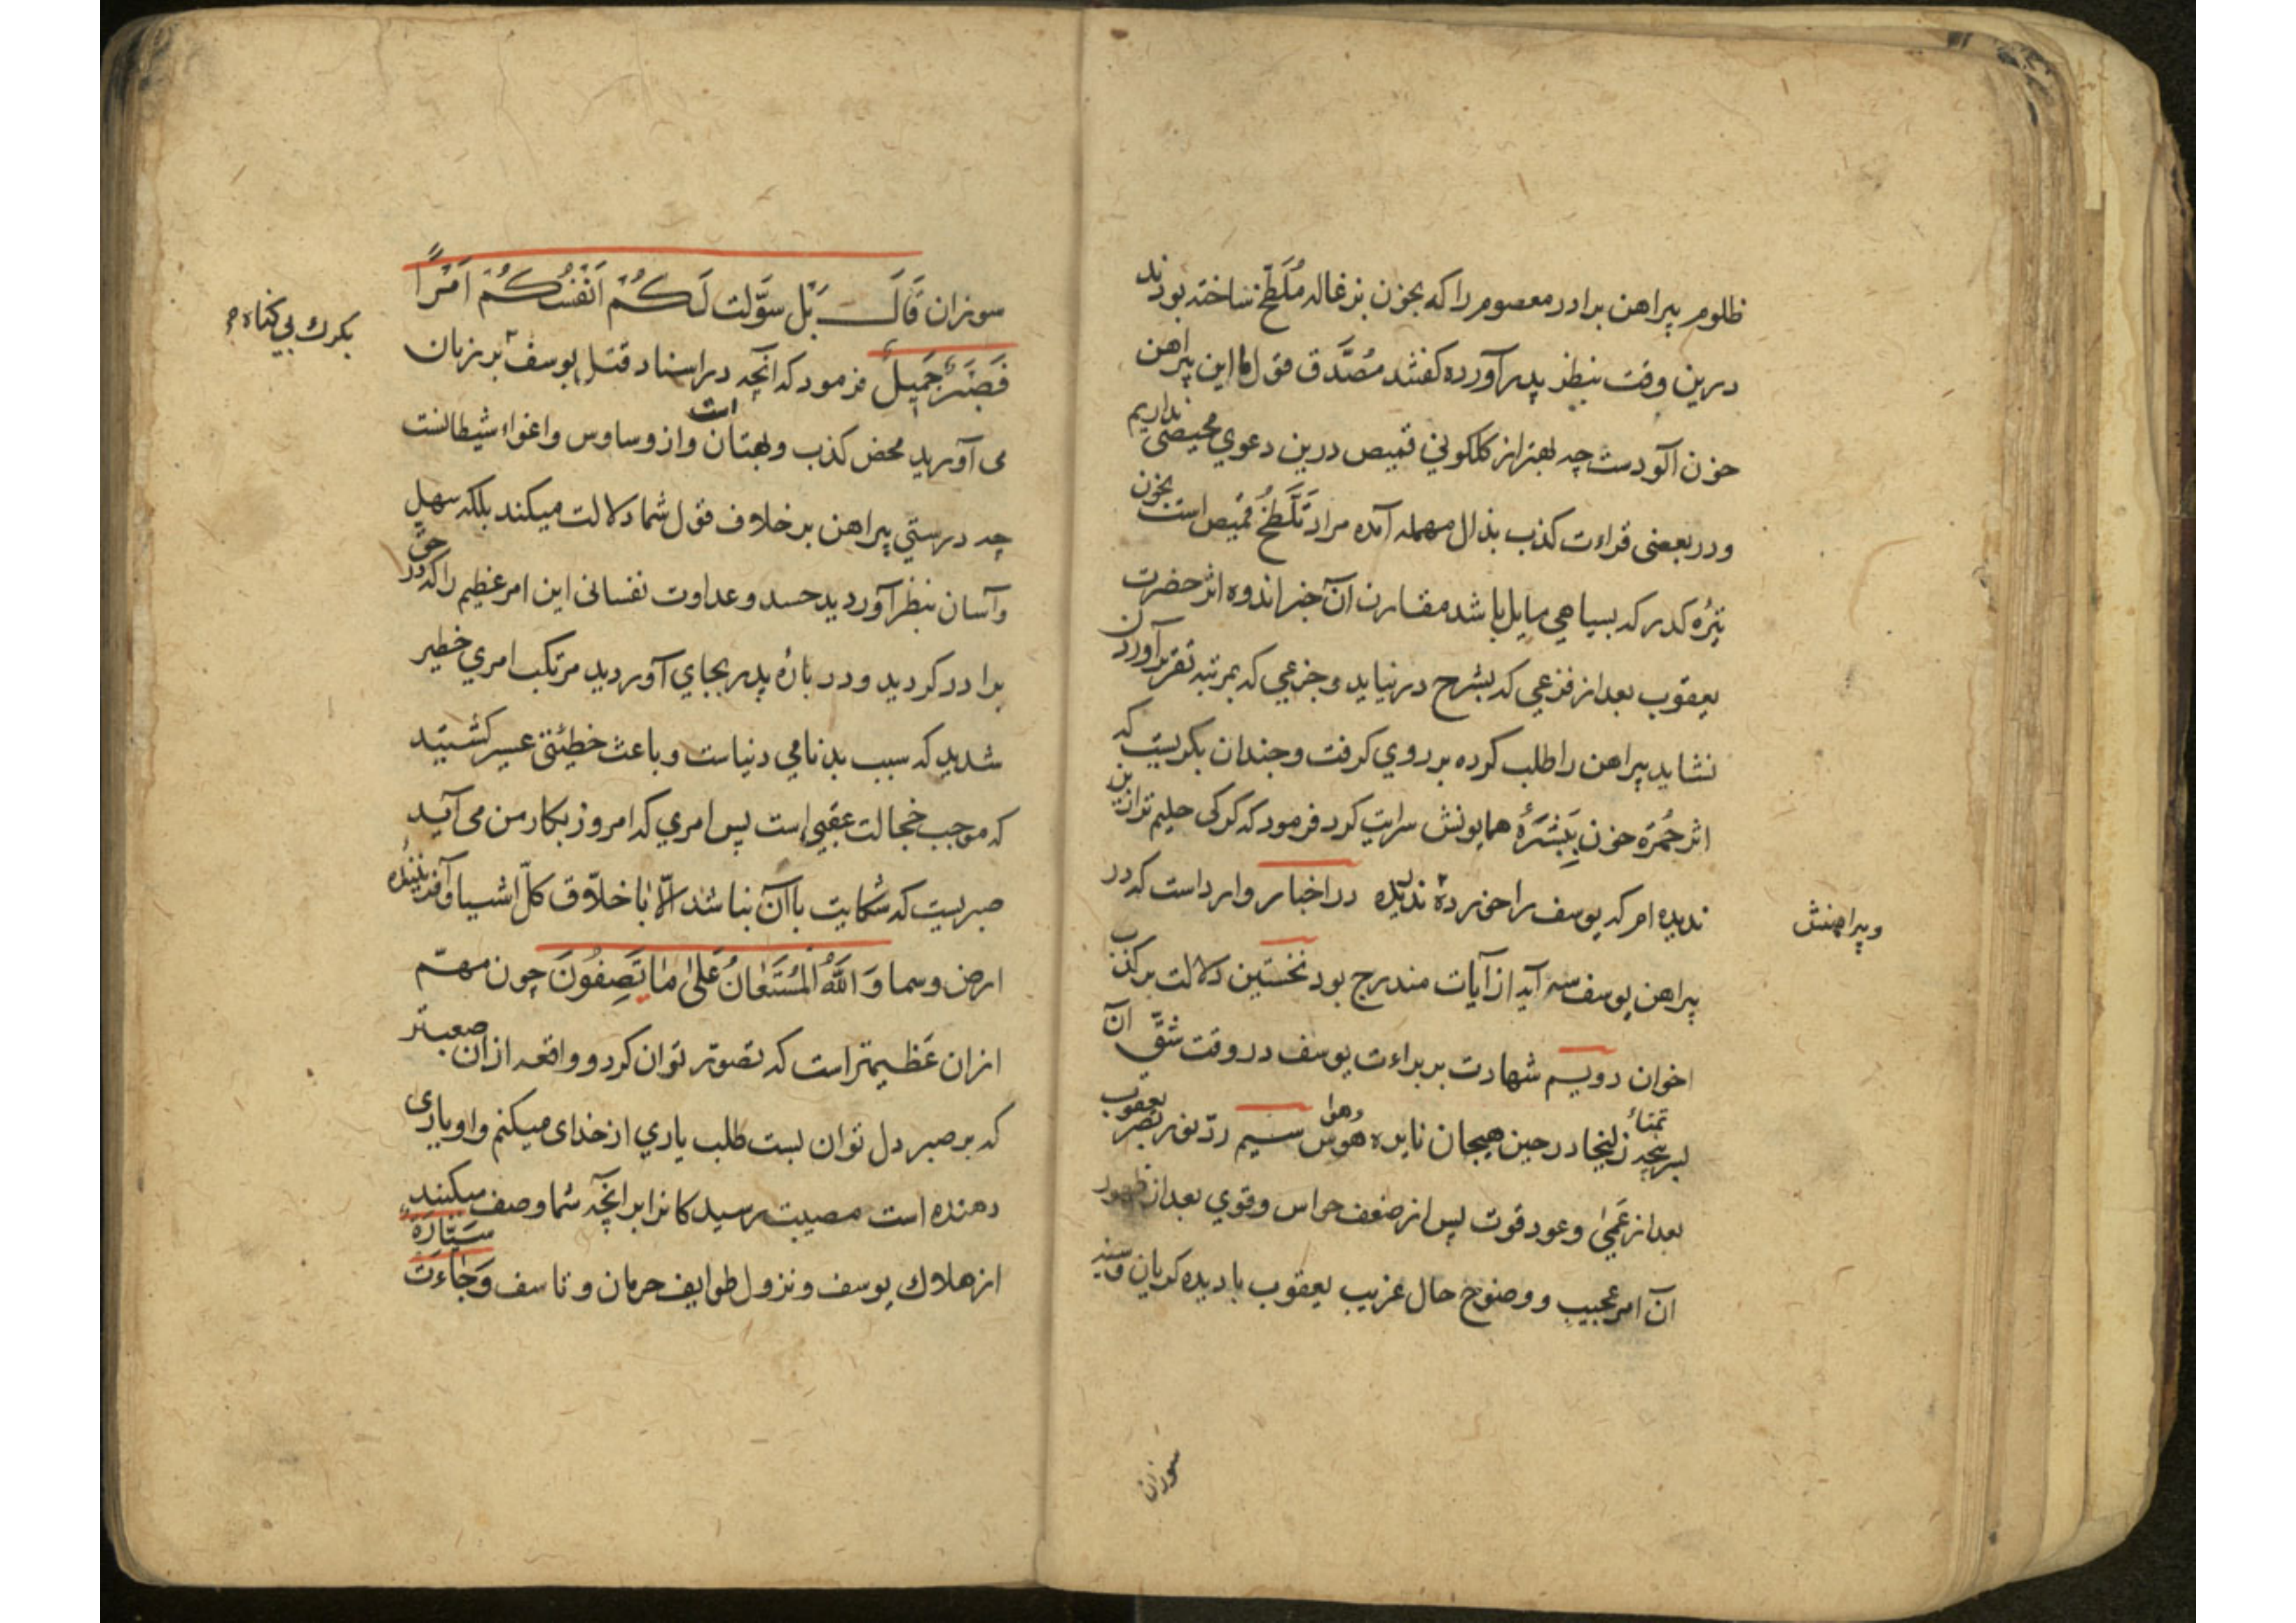 ظلوم پیراهن برادر معصوم را که بخون بزغاله مُلَطَّخ ساخته بودند
درین وقت بنظر پدر آورده کفتند مُصَدَّق قول ما این پیراهن
خون آلودست چه بهتر از کلکونی قمیص درین دعوی محیصی نداریم
ودر بعضی قراءت کذب بدال مهمله آمده مراد تَلَطُّخ قمیص است بخون
تیره کدر که بسیاهی مایل باشد مقارن آن خبر اندوه اثر حضرت
یعقوب بعد از فزعی که بشرح درنیاید وجزعی که بمرتبه تقریر آوردن
نشاید پیراهن را طلب کرده بر روی کرفت وچندان بکریست که
اثر حُمرَة خون بِبَشَرَۀ همایونش سرایت کرد فرمود که کرکی حلیم تر ازین
ندیده ام که یوسف را خورده ندریده در اخبار وارداست که در
وپیراهنش
پیراهن یوسف سه آیه از آیات مندرج بود نخستین دلالت بر کذب
اخوان دویم شهادت بر براءت یوسف در وقت شقّ آن
سرپنجه تمنّاءِ زلیخا در حین هیجان نایره هوس وهوا سیم ردّ نور بصر یعقوب
بعد از عَمیٰ وعود قوت پس از ضعف حواس وقوی بعد از ظهور
آن امر عجیب ووضوح حال غریب یعقوب با دیده کریان وسینه
سوزان
سوزان قَالَ بَل سَوَّلَت لَكُمْ اَنْفُسُكُمْ اَمْرًا
فَصَبْرٌ جَمِيلٌ فرمود که آنچه در اسناد قتل یوسف بر زبان
بکرك بی کناه
می آورید محض کذب وبهتان است واز وساوس واغواء شیطانست
چه درستی پیراهن بر خلاف قول شما دلالت میکند بلکه سهل
وآسان بنظر آوردید حسد وعداوت نفسانی این امر عظیم را که در حق
برادر کردید ودر بارۀ پدر بجای آوردید مرتکب امری خطیر
شدید که سبب بدنامی دنیاست وباعث خطیئتی عسیر کشتید
که موجب خجالت عقبی است پس امری که امروز بکار من می آید
صبریست که شکایت با آن نباشد الّا با خلّاق کلّ اشیا وآفریننده
ارض وسما وَاللّٰهُ الْمُسْتَعَانُ عَلٰی مَا تَصِفُونَ چون مهمّ
ازان عَظیمتر است که تصوّر توان کرد وواقعه ازان صعبتر
که بر صبر دل توان بست طلب یاری از خدای میکنم واو یاری
دهنده است مصیبت رسیدکانرا بر آنچه شما وصف میکنید
از هلاك یوسف ونزول طوایف حرمان وتاسف وَجَاءَتْ سَيَّارَةٌ